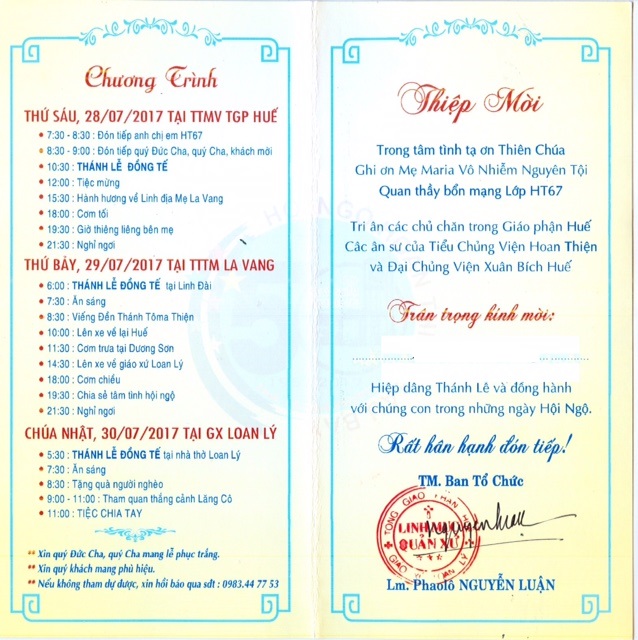 Chương Trình
THỨ SÁU, 28/07/2017 TẠI TTMV TGP HUẾ
• 7:30 - 8:30 : Đón tiếp anh chị em HT67
• 8:30 - 9:00 : Đón tiếp quý Đức Cha, quý Cha, khách mời
• 10:30 : THÁNH LỄ ĐỒNG TẾ
• 12:00 : Tiệc mừng
• 15:30 : Hành hương về Linh địa Mẹ La Vang
• 18:00 : Cơm tối
• 19:30 : Giờ thiêng liêng bên mẹ
• 21:30 : Nghỉ ngơi
THỨ BẢY, 29/07/2017 TẠI TTTM LA VANG
• 6:00 : THÁNH LỄ ĐỒNG TẾ tại Linh Đài
• 7:30 : Ăn sáng
• 8:30 : Viếng Đền Thánh Tôma Thiện
• 10:00 : Lên xe về lại Huế
• 11:30 : Cơm trưa tại Dương Sơn
• 14:30 : Lên xe về giáo xứ Loan Lý
• 18:00 : Cơm chiều
• 19:30 : Chia sẻ tâm tình hội ngộ
• 21:30 : Nghỉ ngơi
CHÚA NHẬT, 30/07/2017 TẠI GX LOAN LÝ
• 5:30 : THÁNH LỄ ĐỒNG TẾ tại nhà thờ Loan Lý
• 7:30 : Ăn sáng
• 8:30 : Tặng quà người nghèo
• 9:00 - 11:00 : Tham quan thắng cảnh Lăng Cô
• 11:00 : TIỆC CHIA TAY
** Xin quý Đức Cha, quý Cha mang lễ phục trắng.
** Xin quý khách mang phù hiệu.
** Nếu không tham dự được, xin hồi báo qua sđt : 0983.44 77 53
Thiệp Mời
Trong tâm tình tạ ơn Thiên Chúa
Ghi ơn Mẹ Maria Vô Nhiễm Nguyên Tội
Quan thầy bổn mạng Lớp HT67
Tri ân các chủ chăn trong Giáo phận Huế
Các ân sư của Tiểu Chủng Viện Hoan Thiện
và Đại Chủng Viện Xuân Bích Huế
Trân trọng kính mời:
Hiệp dâng Thánh Lê và đồng hành
với chúng con trong những ngày Hội Ngộ.
Rất hân hạnh đón tiếp!
TM. Ban Tổ Chức
QUẢN XỨ
Lm. Phaolô NGUYỄN LUẬN